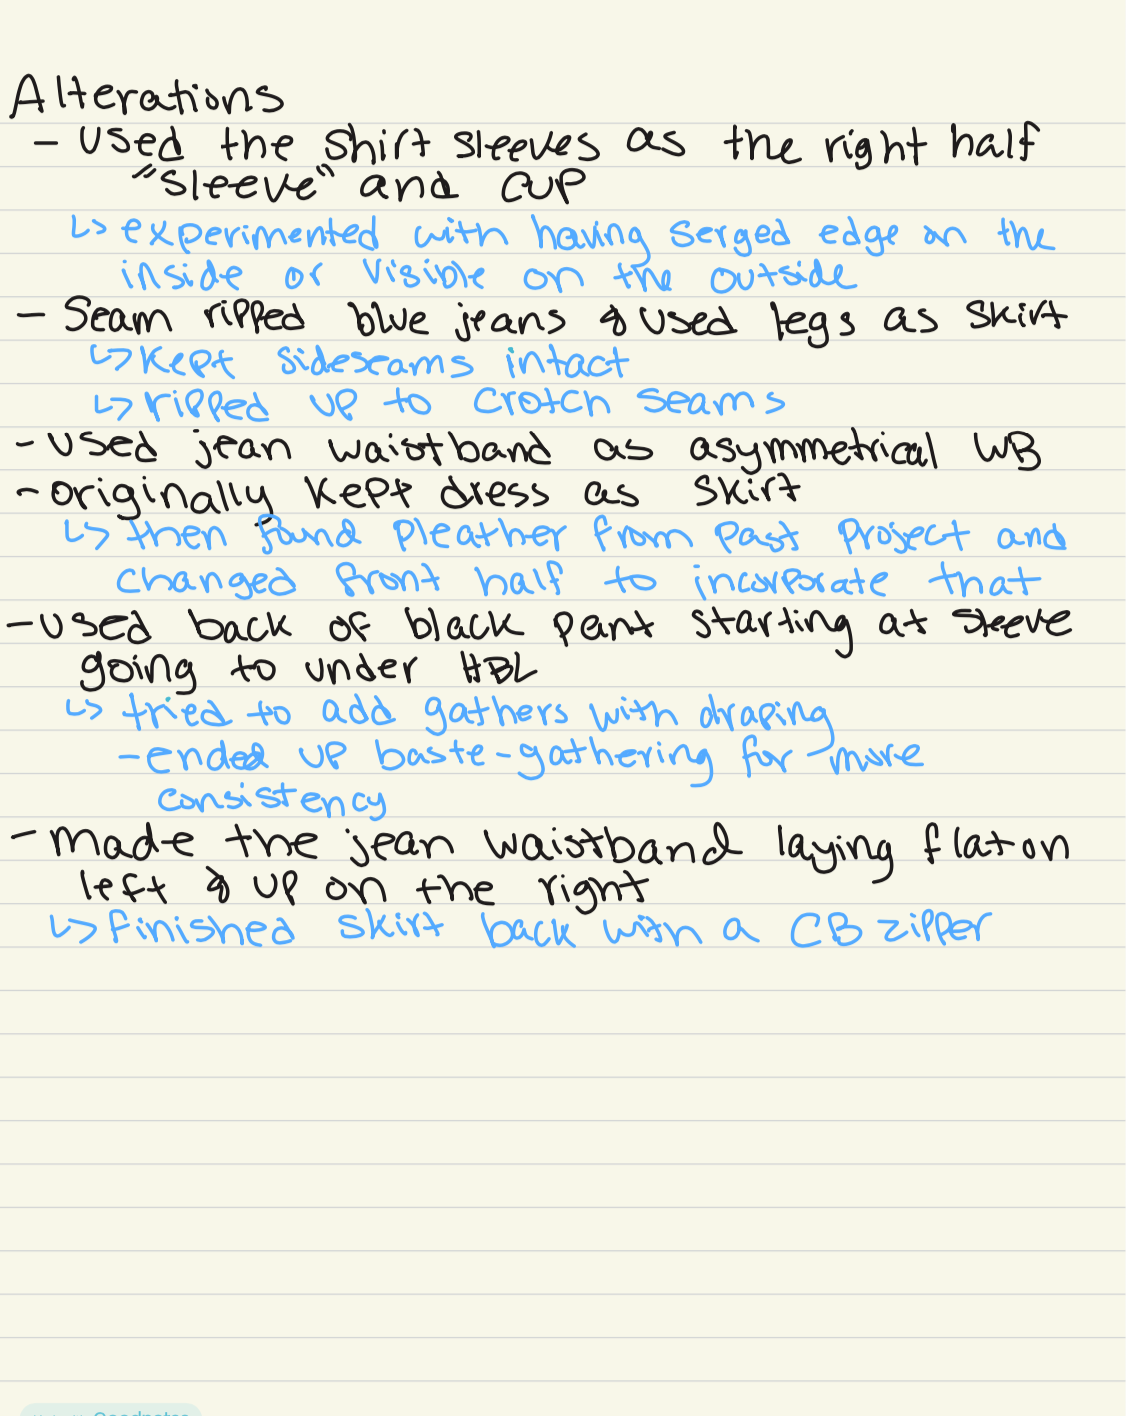 Alterations
- used the shirt sleeves as the right half
"sleeve" and cup
↳ experimented with having serged edge on the
inside or visible on the outside
- Seam ripped blue jeans & used legs as skirt
↳ kept sideseams intact
↳ ripped up to crotch seams
- used jean waistband as asymmetrical WB
- originally kept dress as skirt
↳ then found pleather from past project and
changed front half to incorporate that
- used back of black pant starting at sleeve
going to under HBL
↳ tried to add gathers with draping
- ended up baste-gathering for more
consistency
- made the jean waistband laying flat on
left & up on the right
↳ finished skirt back with a CB zipper